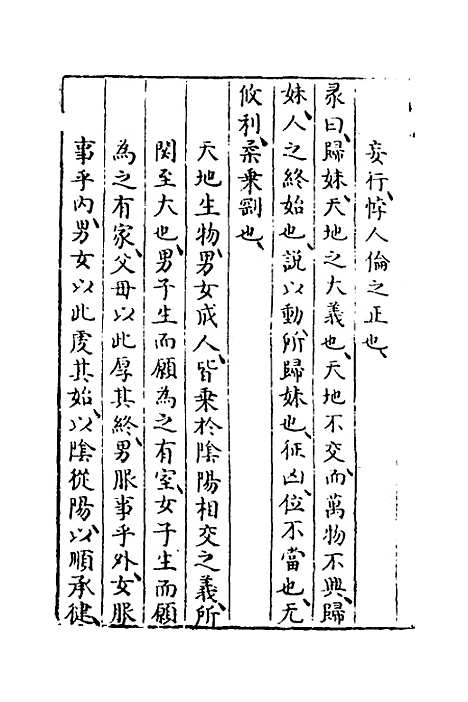 妄行、悖人倫之正也、
彖曰、歸妹、天地之大義也、天地不交、而萬物不興、歸
妹、人之終始也、說以動、所歸妹也、征凶、位不當也、无
攸利、柔乗剛也、
天地生物、男女成人、皆乗於陰陽相交之義、所
関至大也、男子生而願為之有室、女子生而願
為之有家、父母以此厚其終、男服事乎外、女服
事乎內、男女以此虔其始、以陰從陽、以順承健、